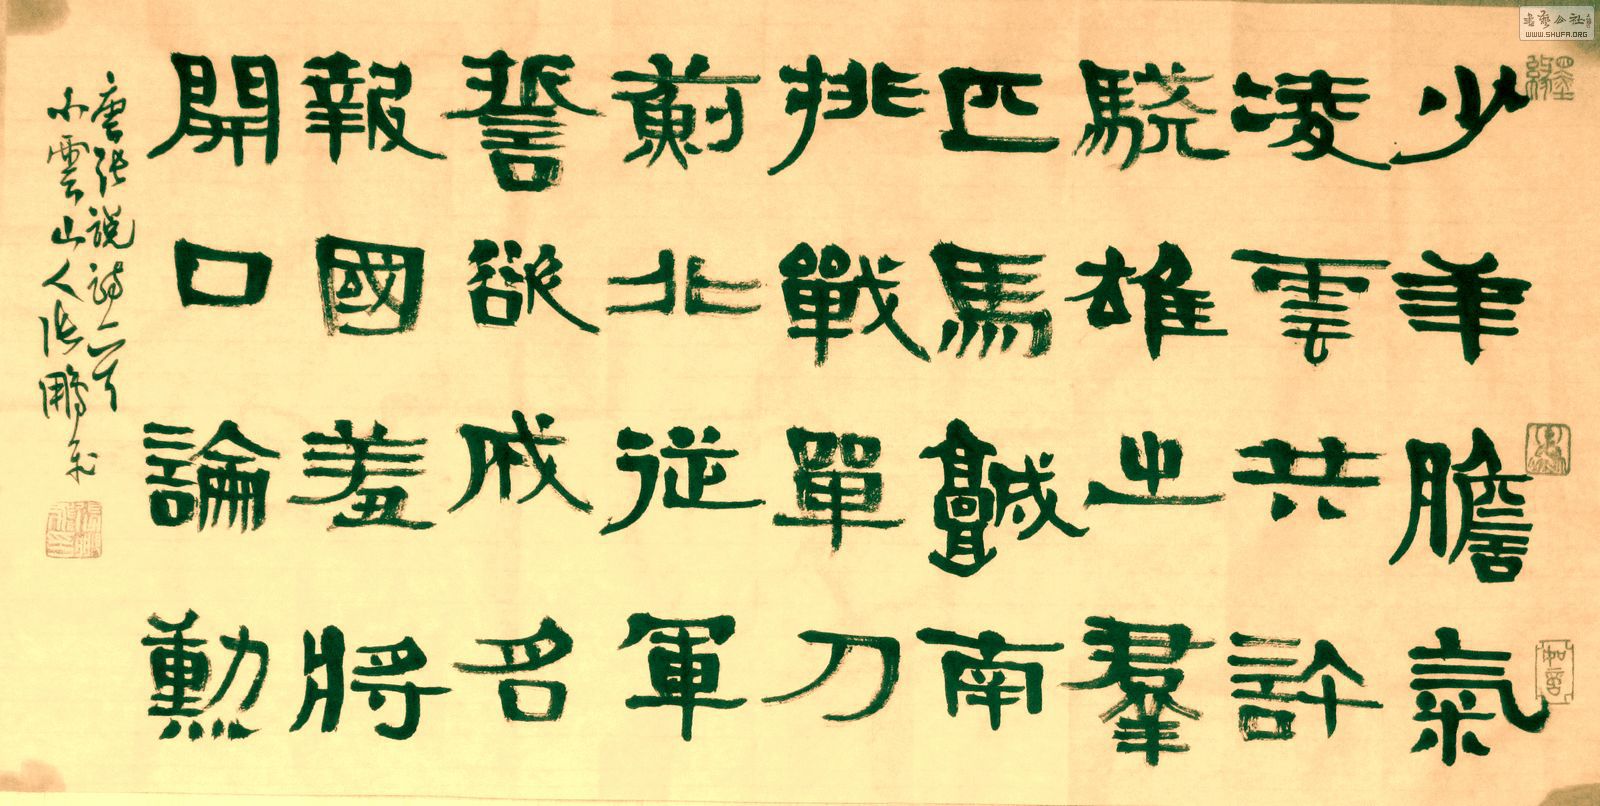 少年膽氣
凌雲共許
驍雄出羣
匹馬䧕南
挑戰單刀
薊北從軍
誓欲成名
報國羞將
開口論勳
唐張說詩
小雲山人張鵬飛
墨緣
書藝公社
WWW.SHUFA.ORG